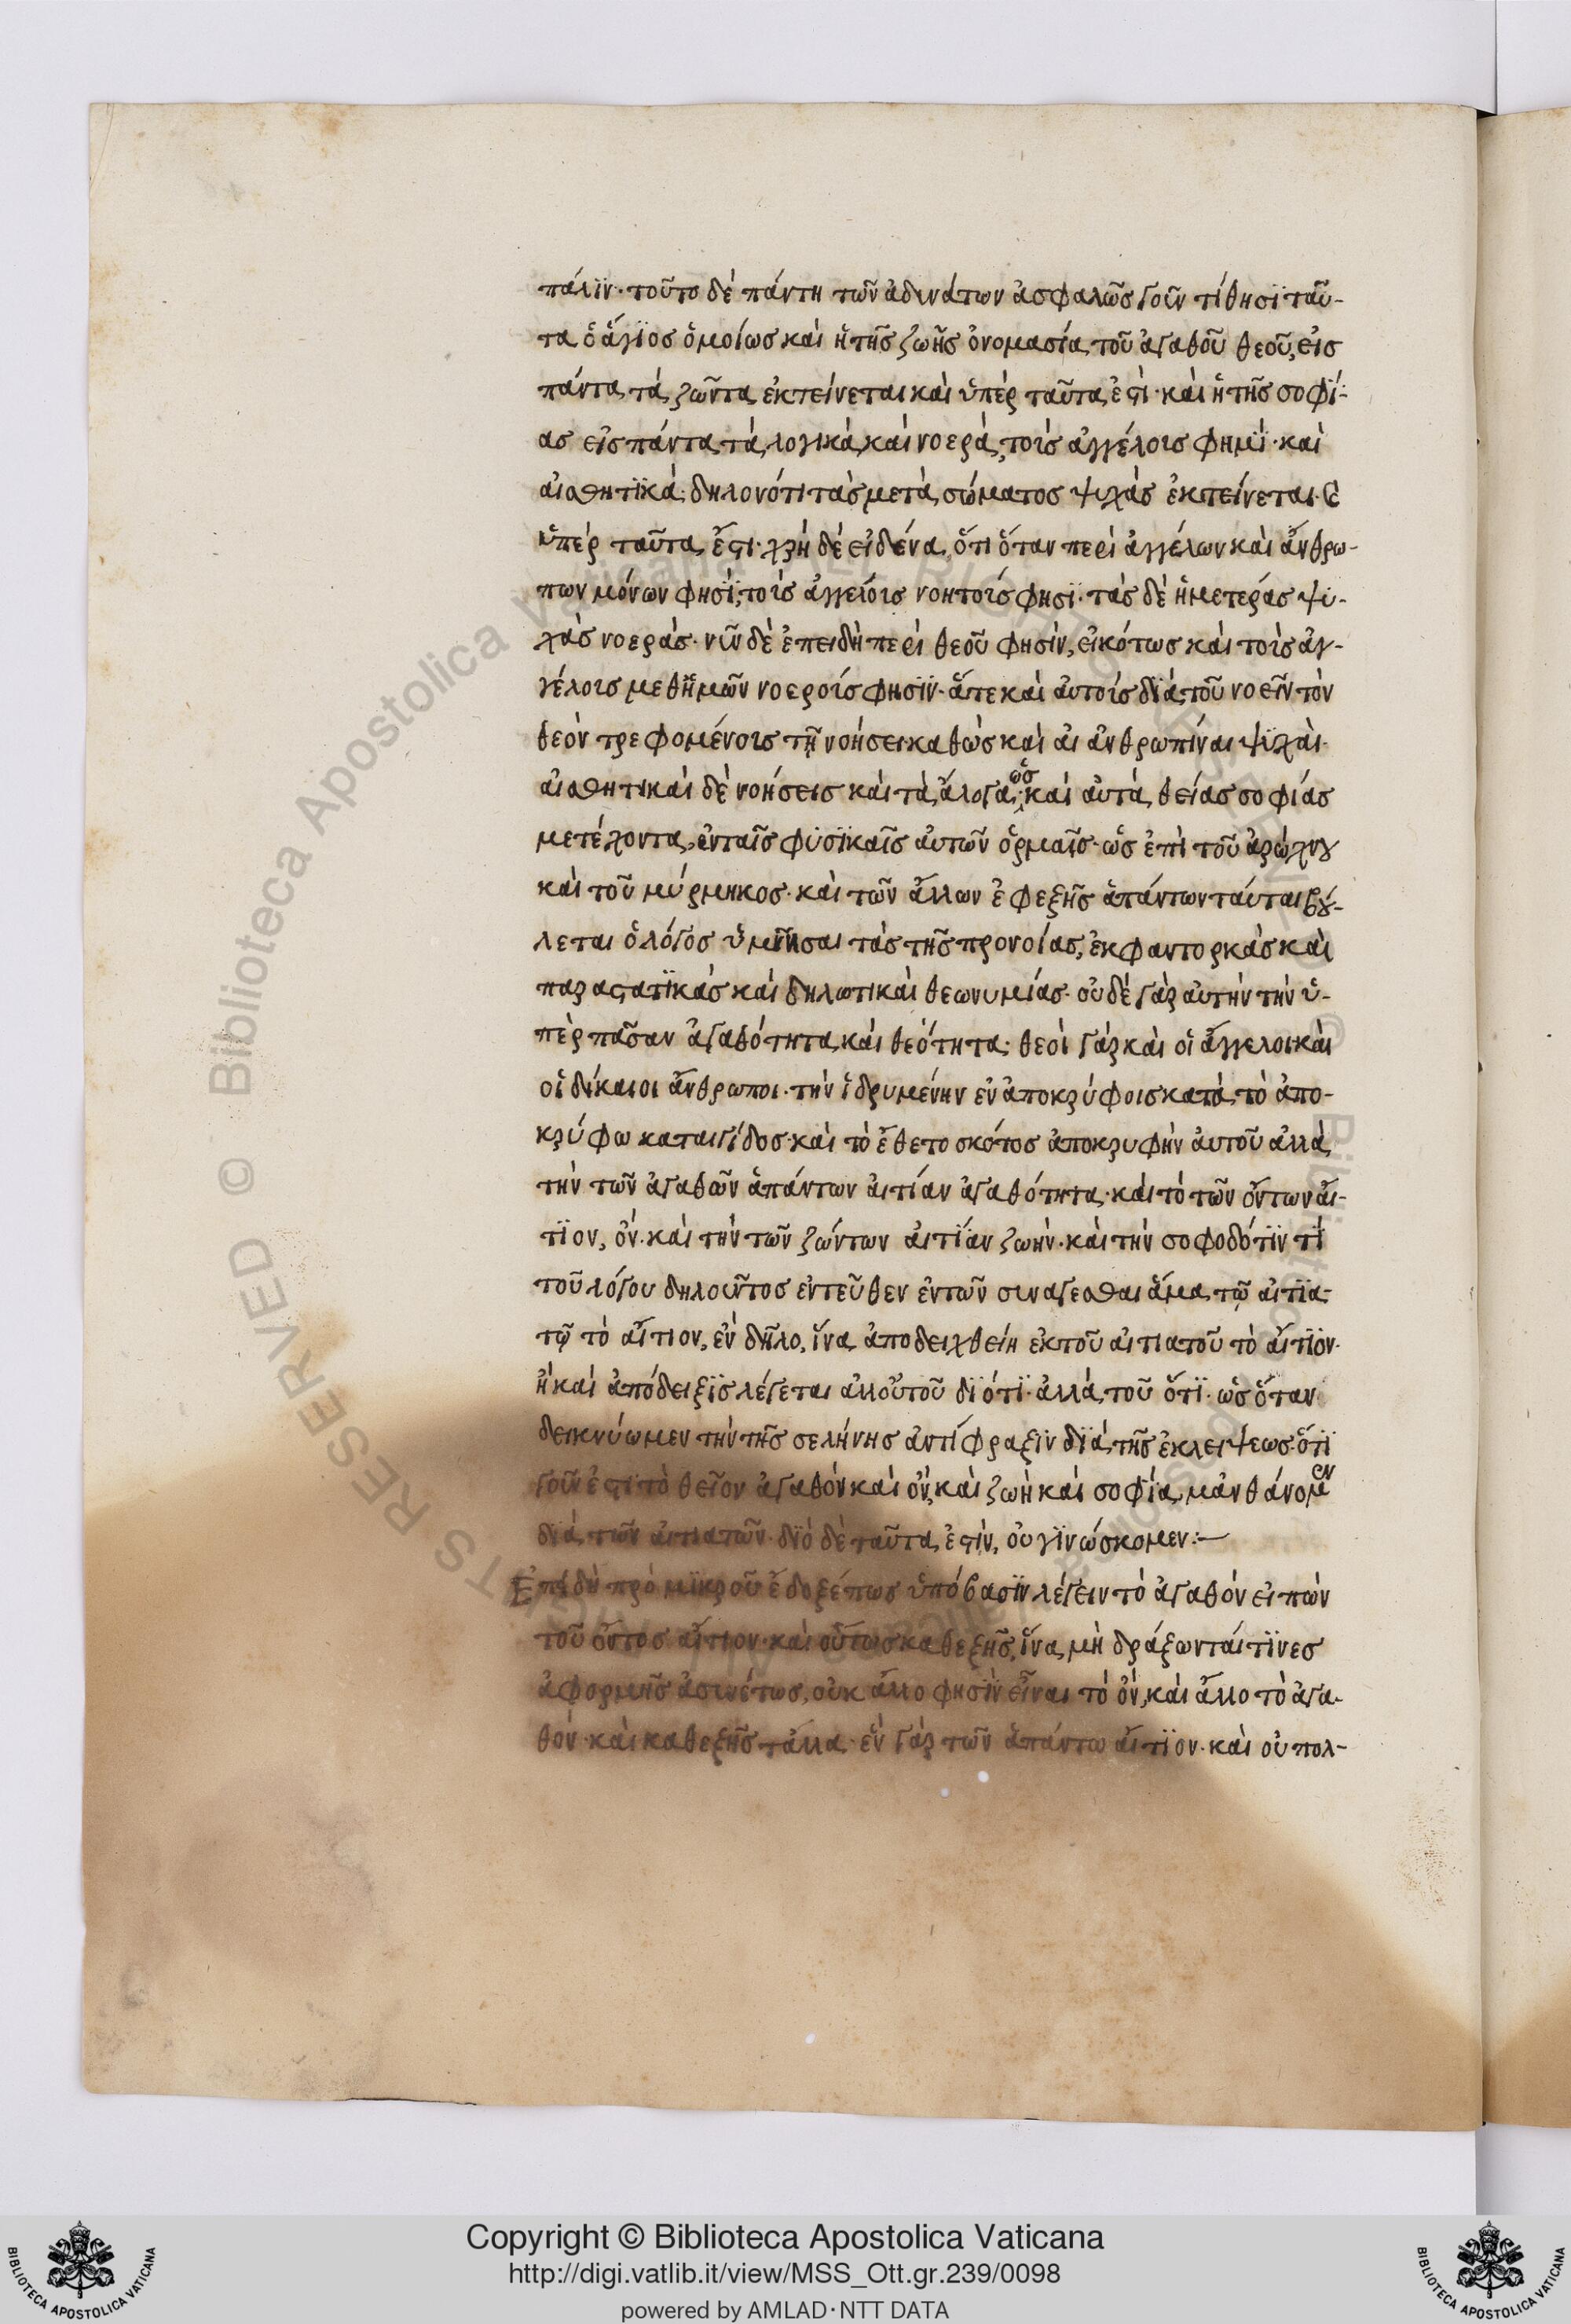 πάλϊν· τοῦτο δὲ πάντη τῶν ἀδυνάτων ἀσφαλῶς γοῦν τίθησϊ ταῦ-
τα ὁ ἅγϊος ὁμοίως καὶ ἡ τῆς ζωῆς ὀνομασία τοῦ ἀγαθοῦ θεοῦ, εἰς
πάντα τὰ ζῶντα ἐκτείνεται καὶ ὑπὲρ ταῦτα ἐστὶ· καὶ ἡ τῆς σοφί-
ας εἰς πάντα τὰ λογικὰ καὶ νοερὰ, τοῖς ἀγγέλοις φημῒ· καὶ
αἰσθητϊκά· δηλονότι τὰς μετὰ σώματος ψυχὰς ἐκτείνεται· καὶ
ὑπὲρ ταῦτα ἔστι· χρὴ δὲ εἰδένα ὅτι ὅταν περὶ ἀγγέλων καὶ ἄνθρω-
πων μόνων φησῒ, τοῖς ἀγγείοις νοητοῖς φησϊ· τὰς δὲ ἡμετερὰς ψυ-
χὰς νοερὰς· νῦν δὲ ἐπειδὴ περὶ θεοῦ φησὶν, εἰκότως καὶ τοῖς ἀγ-
γέλοις μεθἡμῶν νοεροῖς φησϊν· ἅτε καὶ αὐτοῖς δϊὰ τοῦ νοεῖν τὸν
θεὸν τρεφομένοις τῇ νοήσει καθὼς καὶ αἱ ἀνθρωπίναι ψϋχὰι·
αἰσθητικαὶ δὲ νοήσεις καὶ τὰ ἄλογα· ὡς καὶ αὐτὰ θείας σοφίας
μετέχοντα, ἐνταῖς φϋσϊκαῖς αὐτῶν ὁρμαῖς· ὡς ἐπὶ τοῦ ἀρώχνου
καὶ τοῦ μύρμηκος· καὶ τῶν ἄλλων ἐφεξῆς ἁπάντων ταύται βού-
λεται ὁ λόγος ὑμνῆσαι τὰς τῆς προνοίας, ἐκφαντορκὰς καὶ
παραστατϊκὰς καὶ δηλωτικὰι θεωνυμίας· οὐδὲ γὰρ αὐτὴν τὴν ὑ-
πὲρ πᾶσαν ἀγαθότητα καὶ θεότητα· θεοὶ γὰρ καὶ οἱ ἄγγελοι καὶ
οἱ δίκαιοι ἄνθρωποι· τὴν ἱδρυμένην ἐν ἀποκρύφοις κατὰ τὸ ἀπο-
κρύφω καταιγίδος· καὶ τὸ ἔθετο σκότος ἀποκρυφὴν ἀυτοῦ ἀλλὰ
τὴν τῶν ἀγαθῶν ἁπάντων ἀιτίαν ἀγαθότητα· καὶ τὸ τῶν ὄντων ἄι-
τϊον, ὄν· καὶ τὴν τῶν ζώντων ἀιτϊάν ζωὴν· καὶ τὴν σοφοδότϊν τῒ
τοῦ λόγου δηλοῦντος ἐντεῦθεν ἐντῶν συναγεσθαι ἅμα τῷ αἰτϊα-
τῷ τὸ αἴτιον, ἐν δῆλο, ἵνα ἀποδειχθείη ἐκτοῦ αἰτιατοῦ τὸ ἄιτϊον·
ἡ καὶ ἀπόδειξϊς λέγεται ἀλλοὐτοῦ δϊότϊ· ἀλλὰ τοῦ ὅτϊ· ὡς ὅταν
δεικνύωμεν τὴν τῆς σελήνης ἀντίφραξϊν δϊὰ τῆς ἐκλειψεως· ὅτϊ
γοῦν ἐστι τὸ θεῖον ἀγαθὸν καὶ ὂν, καὶ ζωὴ καὶ σοφία, μανθάνομεν
δϊὰ τῶν ἀιτιατῶν· δϊὸ δὲ ταῦτα ἐστὶν, οὐ γϊνώσκομεν:—
Ἐπιδὴ πρὸ μϊκροῦ ἔδοξέπως ὑπόβασϊν λέγειν τὸ ἀγαθὸν εἰπὼν
τοῦ ὄντος αἴτιον· καὶ οὕτως καθεξῆς, ἵνα μὴ δράξωνταί τϊνες
ἀφορμῆς ἀσυνέτως, οὐκ ἄλλο φησῒν εἶναι τὸ ὂν, καὶ ἄλλο τὸ ἀγα-
θὸν· καὶ καθεξῆς τἄλλα· ἓν γὰρ τῶν ἁπάντω αἴτϊον· καὶ οὐ πολ-
Copyright © Biblioteca Apostolica Vaticana
http://digi.vatlib.it/view/MSS_Ott.gr.239/0098
powered by AMLAD·NTT DATA